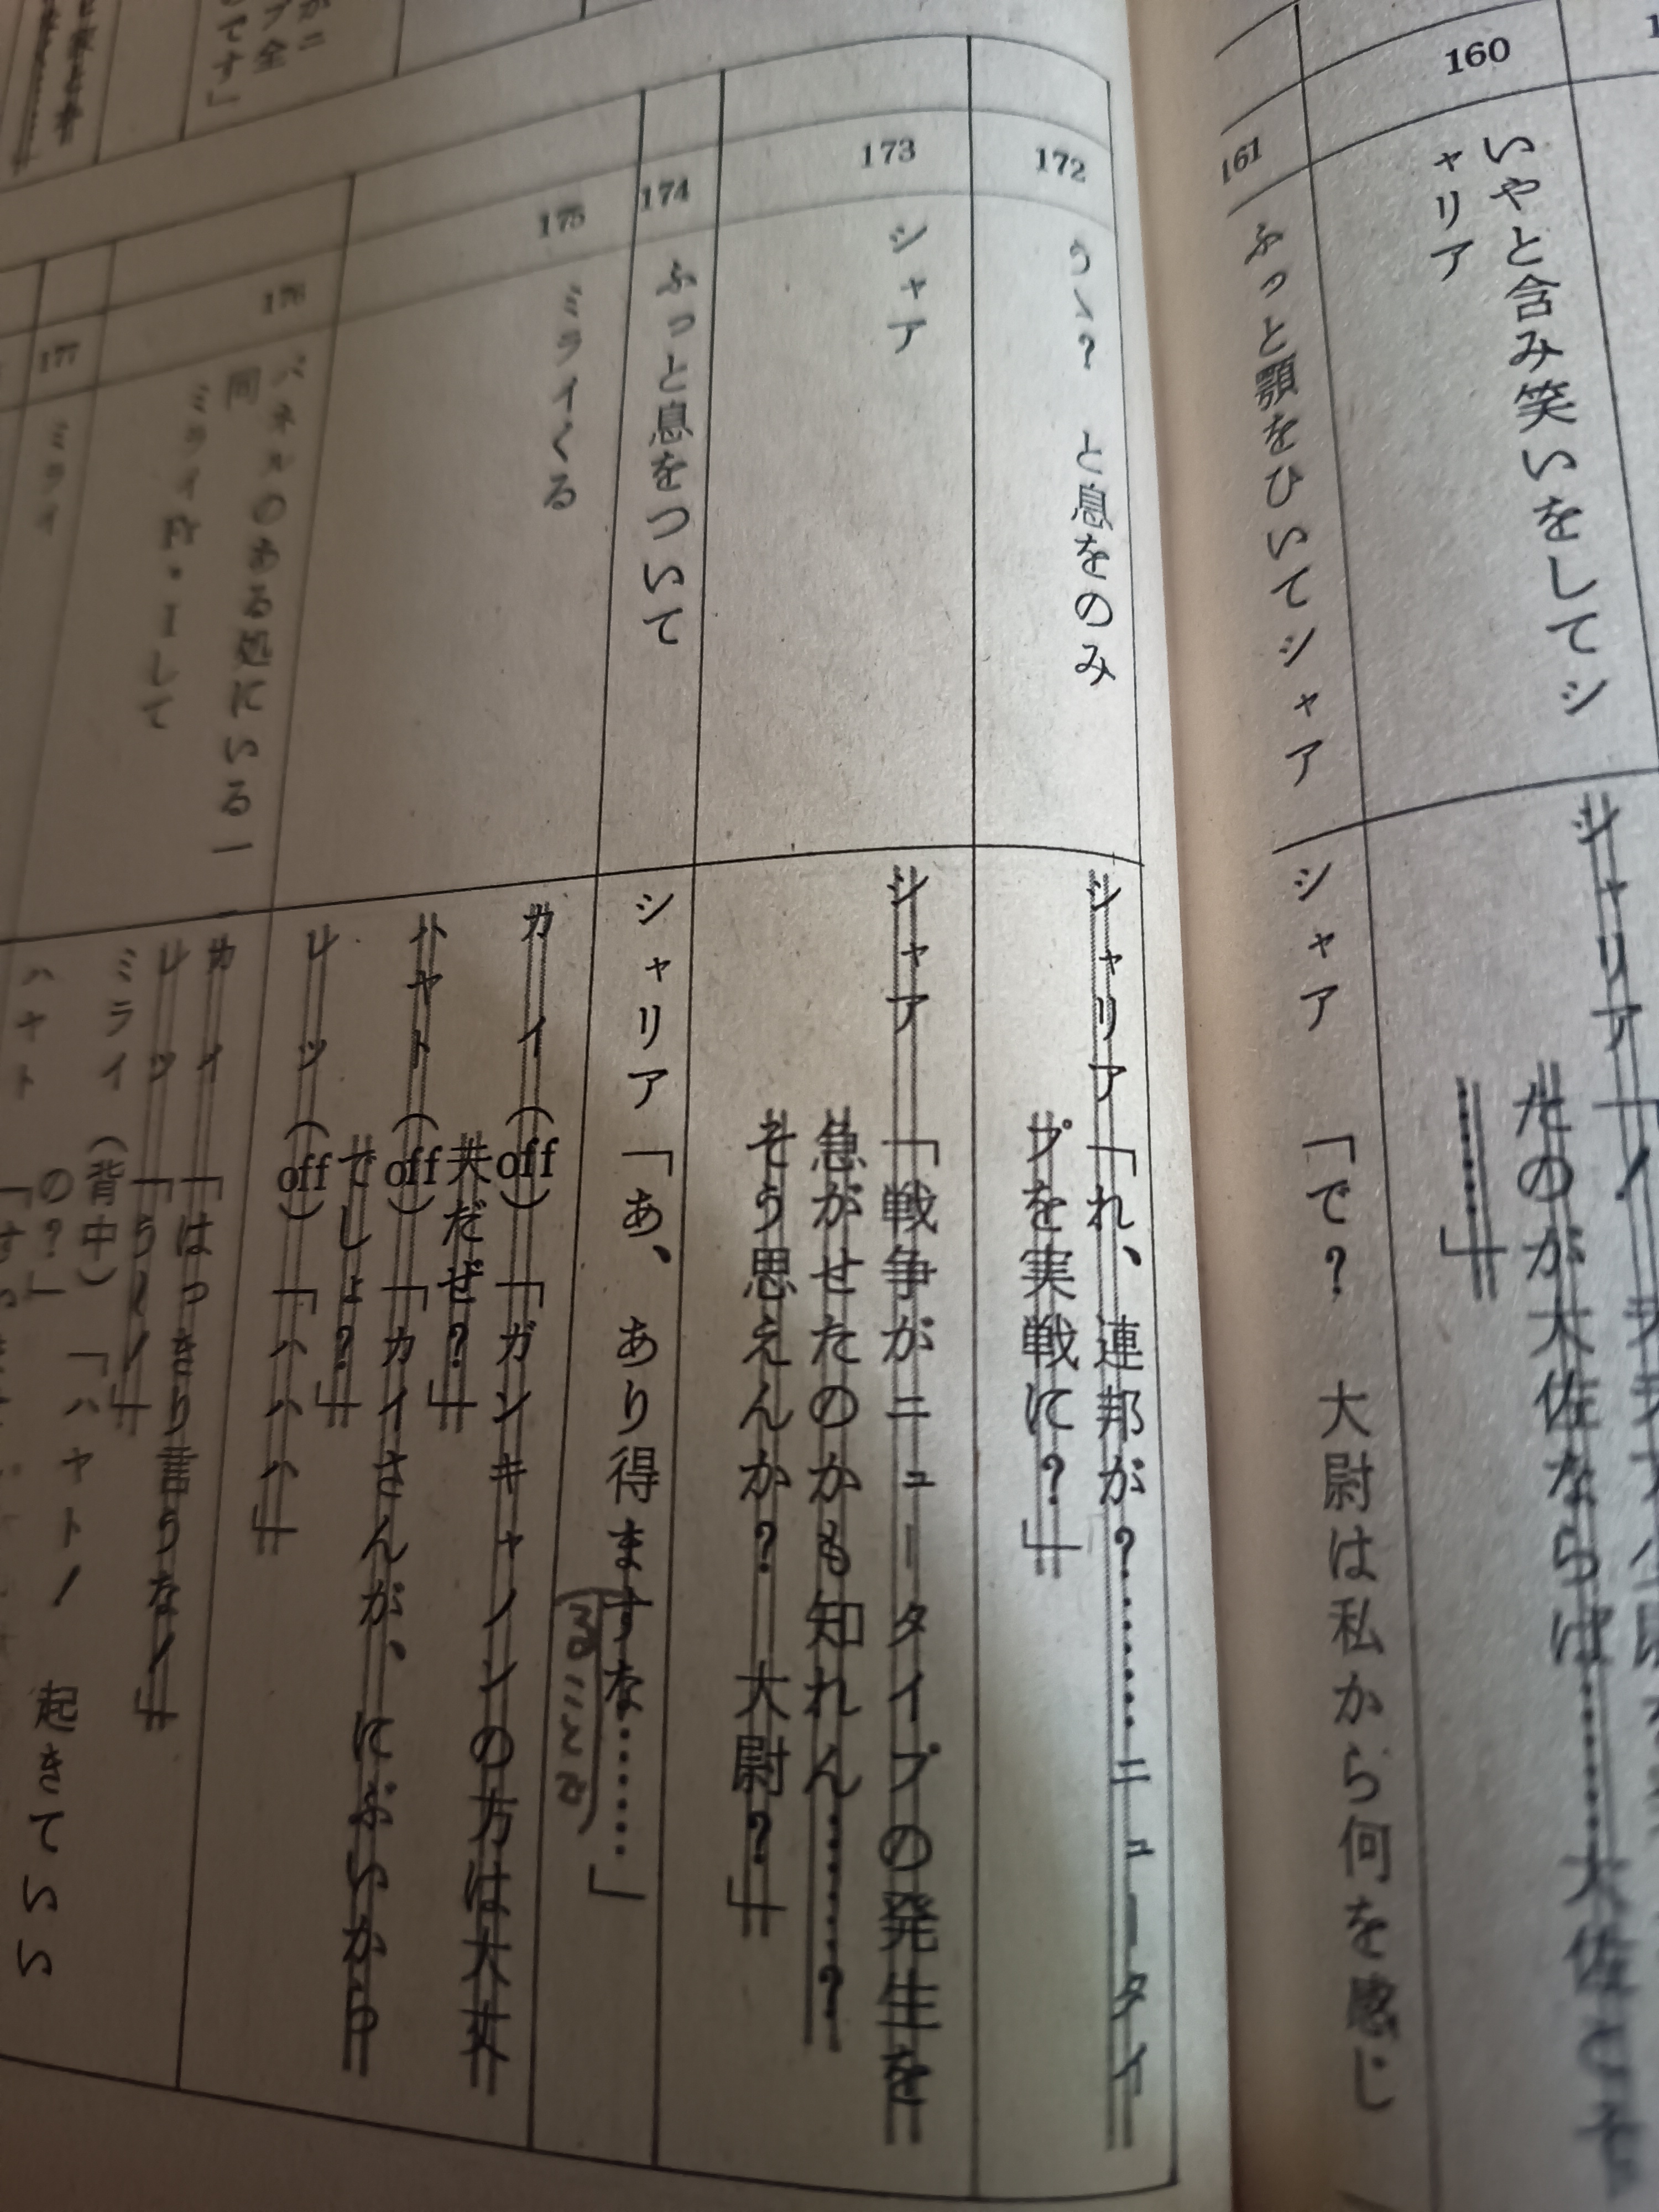 160
いやと含み笑いをしてシ
ャリア
シャリア
たのが大佐ならば………大佐こそ
………」
161
ふっと顎をひいてシャア
シャア 「で? 大尉は私から何を感じ
172
うゝ? と息をのみ
シャリア 「れ、連邦が?………ニュータイ
プを実戦に?」
173
シャア
シャア 「戦争がニュータイプの発生を
急がせたのかも知れん………?
そう思えんか? 大尉?」
174
ふっと息をついて
シャリア 「あ、あり得ますな………」
ることだ
175
ミライくる
カイ(off)「ガンキャノンの方は大丈
夫だぜ?」
ハヤト(off)「カイさんが、にぶいから
でしょ?」
レツ(off)「ハハハ」
176
パネルのある処にいる一
同
ミライ
カイ 「はっきり言うな!」
レツ 「うん!」
ミライ(背中)「ハヤト! 起きてい
い
の?」
177
ミライ
ハヤト
です」